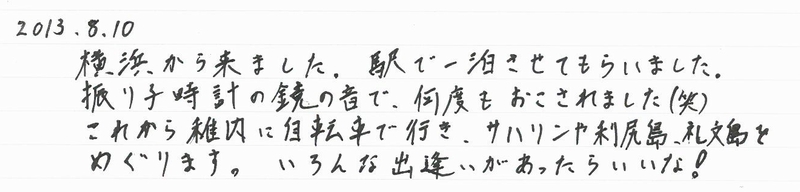 2013.8.10
横浜から来ました。駅で一泊させてもらいました。
振り子時計の鏡の音で、何度もおこされました(笑)
これから稚内に自転車で行き、サハリンや利尻島、礼文島を
めぐります。いろんな出逢いがあったらいいな!